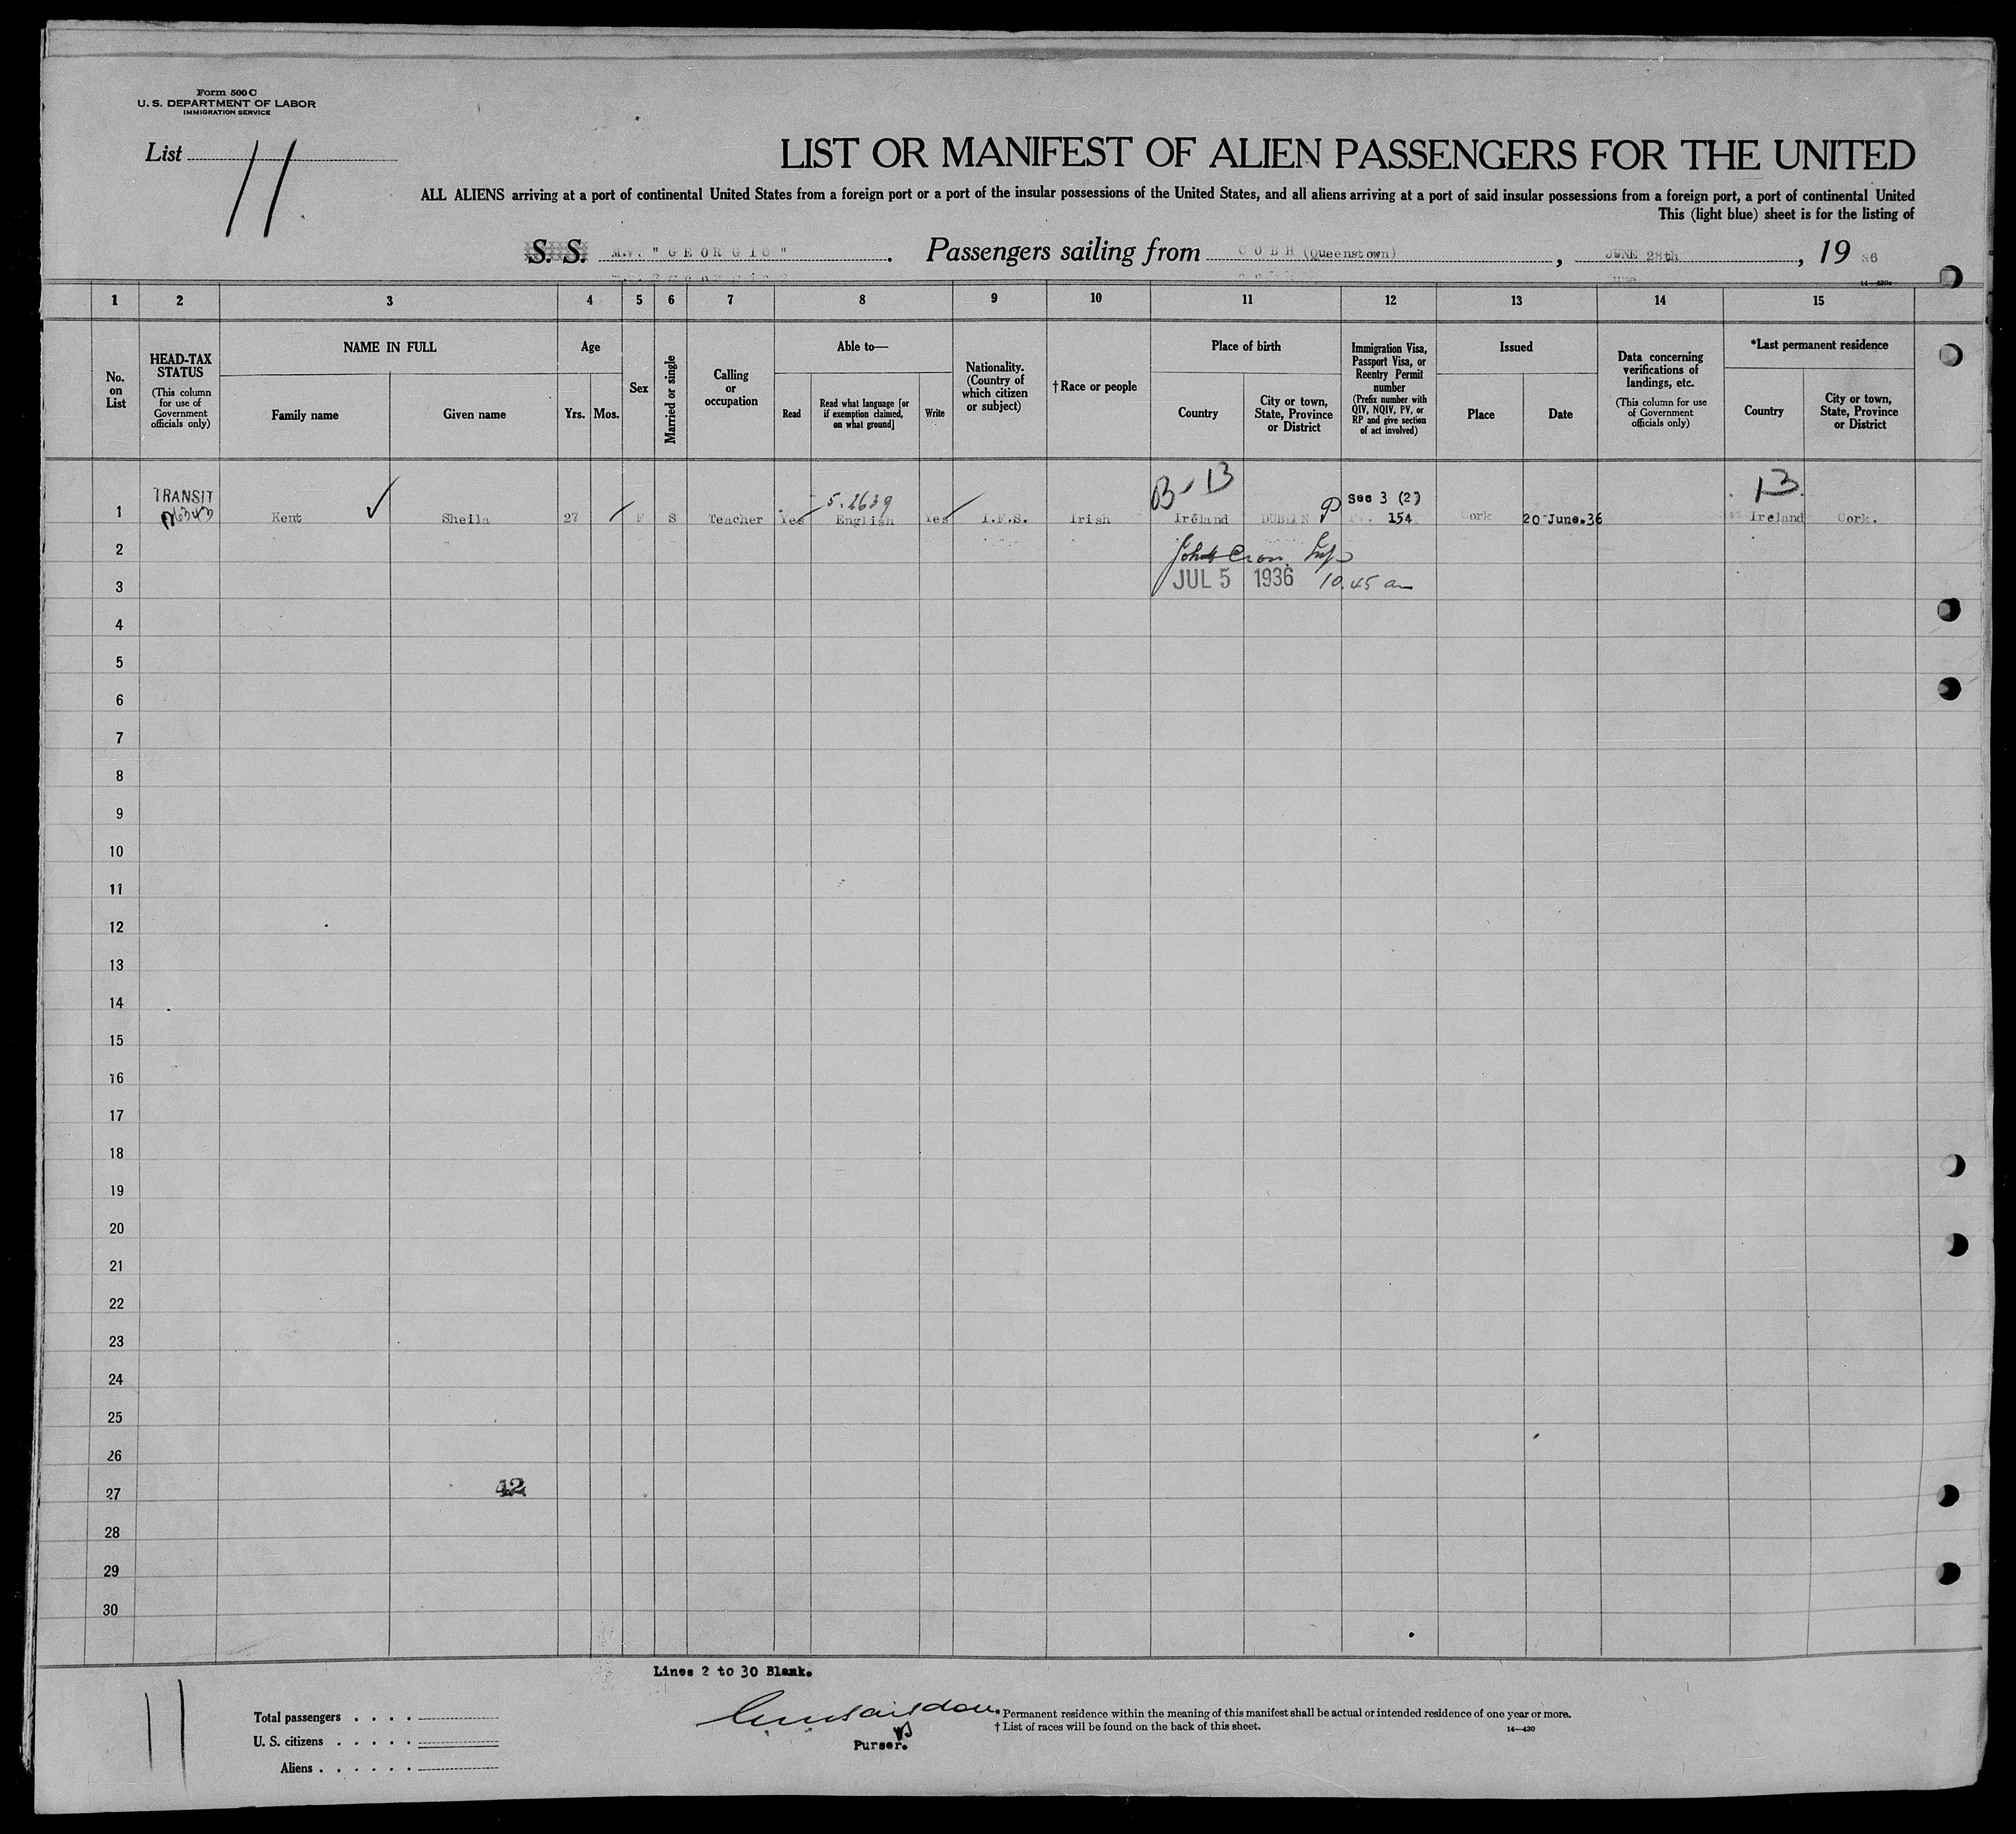 Form 500 C
U. S. DEPARTMENT OF LABOR
IMMIGRATION SERVICE
List 11
LIST OR MANIFEST OF ALIEN PASSENGERS FOR THE UNITED
ALL ALIENS arriving at a port of continental United States from a foreign port or a port of the insular possessions of the United States, and all aliens arriving at a port of said insular possessions from a foreign port, a port of continental United
This (light blue) sheet is for the listing of
S. S. M.V. "GEORGIC". Passengers sailing from COBH (Queenstown), JUNE 28th, 19 36
14—430a
1 2 3 4 5 6 7 8 9 10 11 12 13 14 15
No. on List
HEAD-TAX STATUS
(This column for use of Government officials only)
NAME IN FULL
Family name Given name
Age
Yrs. Mos.
Sex
Married or single
Calling or occupation
Able to—
Read
Read what language [or if exemption claimed, on what ground]
Write
Nationality. (Country of which citizen or subject)
†Race or people
Place of birth
Country
City or town, State, Province or District
Immigration Visa, Passport Visa, or Reentry Permit number
(Prefix number with QIV, NQIV, PV, or RP and give section of act involved)
Issued
Place Date
Data concerning verifications of landings, etc.
(This column for use of Government officials only)
*Last permanent residence
Country
City or town, State, Province or District
B-13 13
TRANSIT 5.2639 Sec 3 (2)
1 Kent Sheila 27 F S Teacher Yes English Yes I.F.S. Irish Ireland DUBLIN P PV. 154 Cork 20 June.36 Ireland Cork.
2
JUL 5 1936 10.45 am
3
4
5
6
7
8
9
10
11
12
13
14
15
16
17
18
19
20
21
22
23
24
25
26
27 42
28
29
30
Lines 2 to 30 Blank.
11
Total passengers
U. S. citizens
Aliens
Purser.
* Permanent residence within the meaning of this manifest shall be actual or intended residence of one year or more.
† List of races will be found on the back of this sheet.
14—430